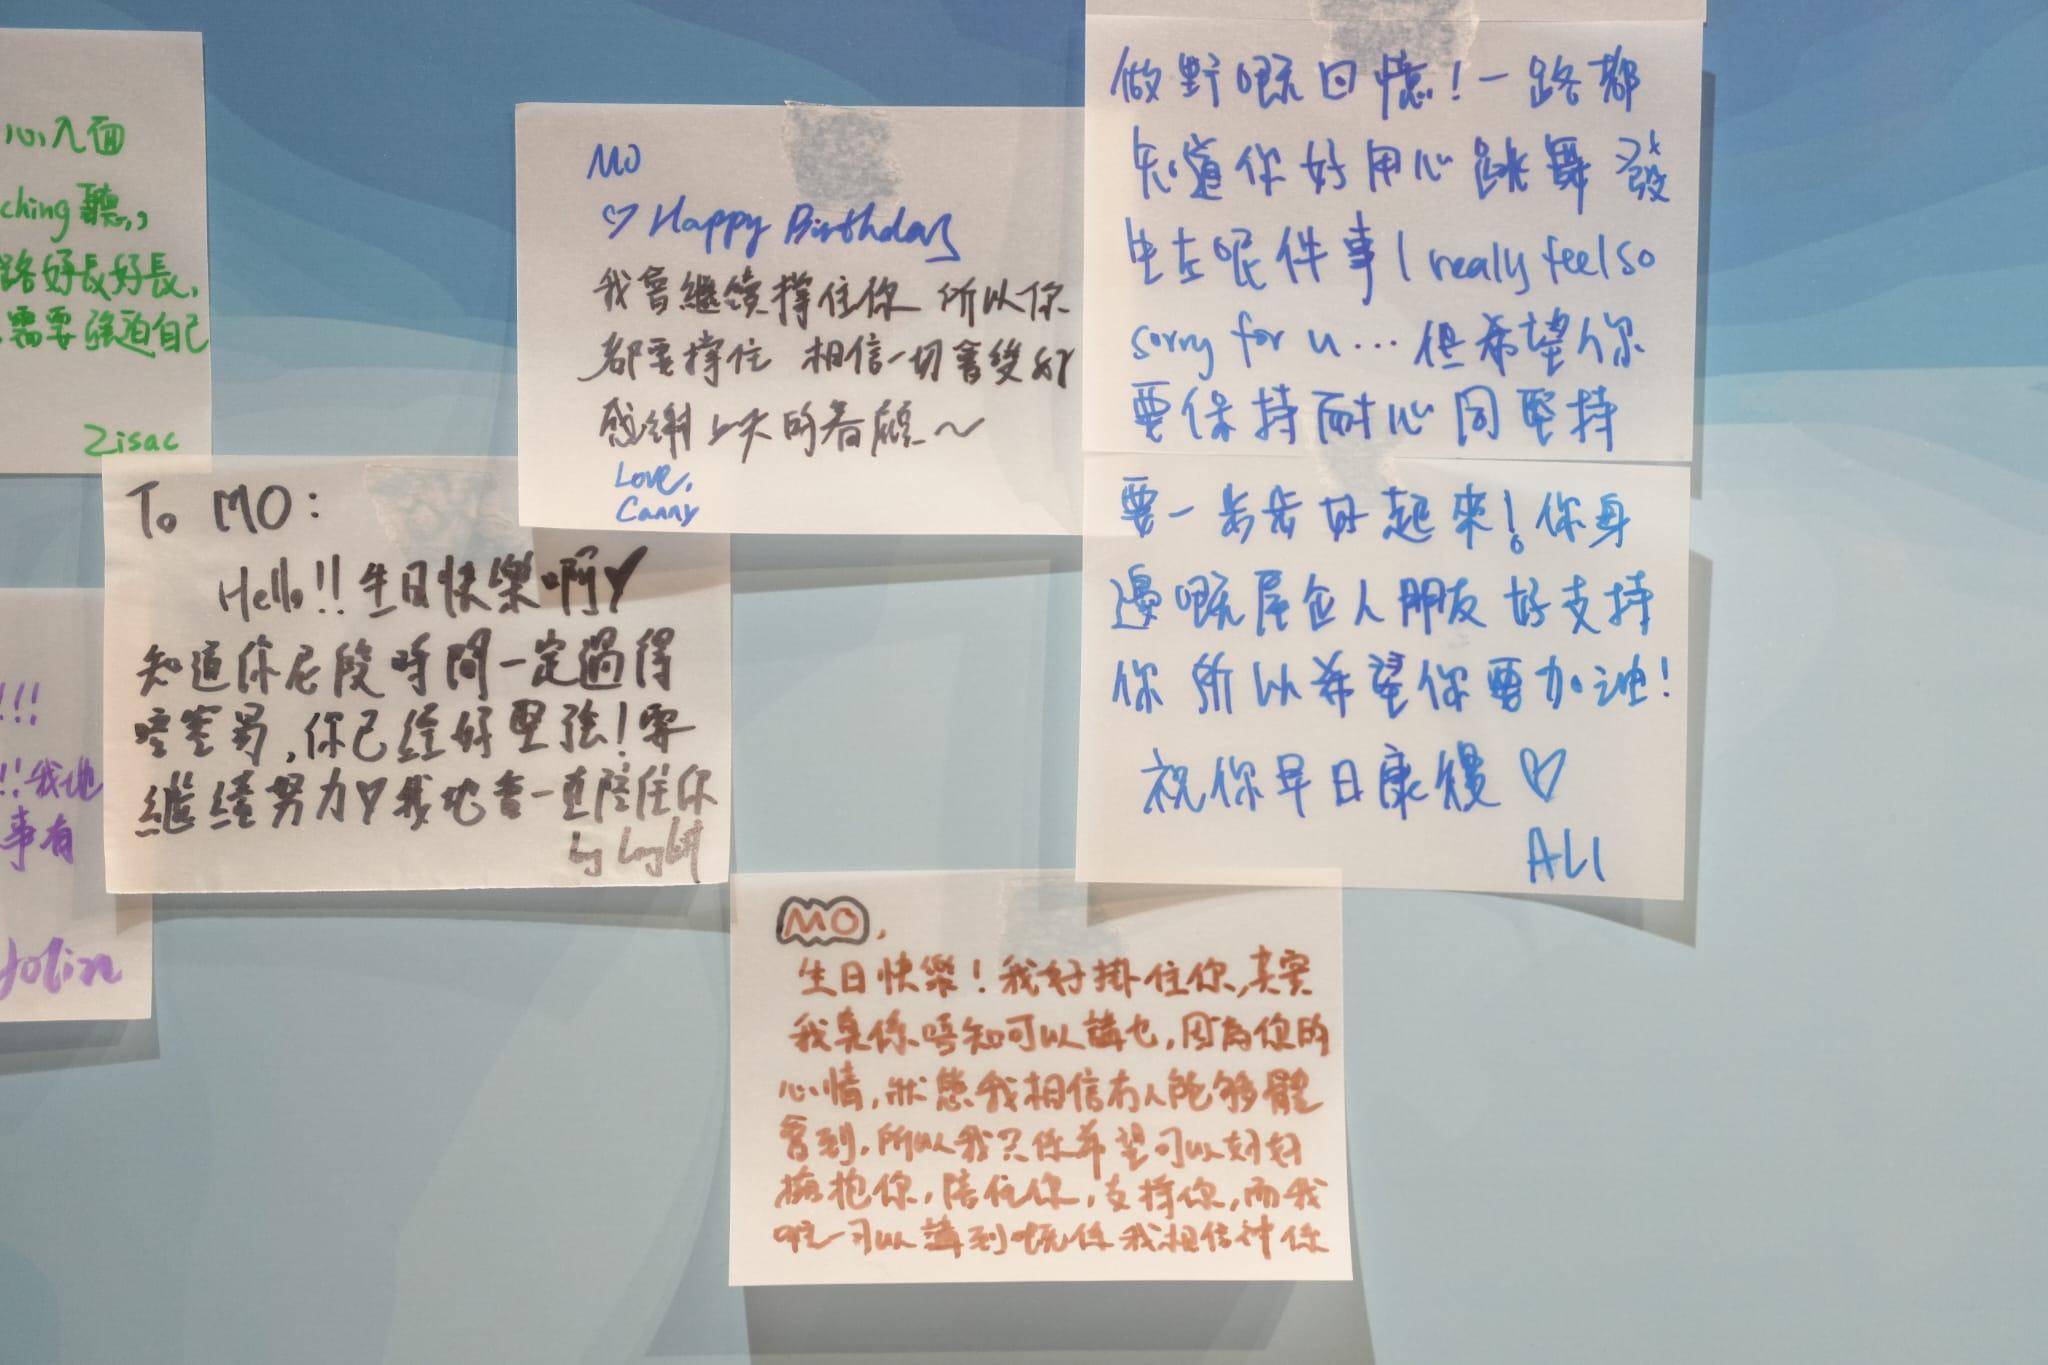 心入面
ching聽,,
路好長好長,
需要強迫自己
Zisac
!!!
!!我地
事有
To MO:
Hello!!生日快樂啊♥
知道你尼段時間一定過得
唔容易,你已經好堅強!要
繼續努力♥我地會一直陪住你
by
MO
♡ Happy Birthday
我會繼續撐住你 所以你
都要撐住 相信一切會變好
感謝上天的眷顧~
Love,
Canny
做野嘅回憶!一路都
知道你好用心跳舞 發
生左呢件事 I really feel so
sorry for u...但希望你
要保持耐心同堅持
要一步步好起來!你身
邊嘅屋企人朋友好支持
你 所以希望你要加油!
祝你早日康復♡
ALI
MO,
生日快樂!我好掛住你,其實
我真係唔知可以講乜,因為你的
心情,狀態我相信冇人能夠體
會到,所以我只係希望可以好好
擁抱你,陪住你,支撐你,而我
唯一可以講到嘅係我相信神係